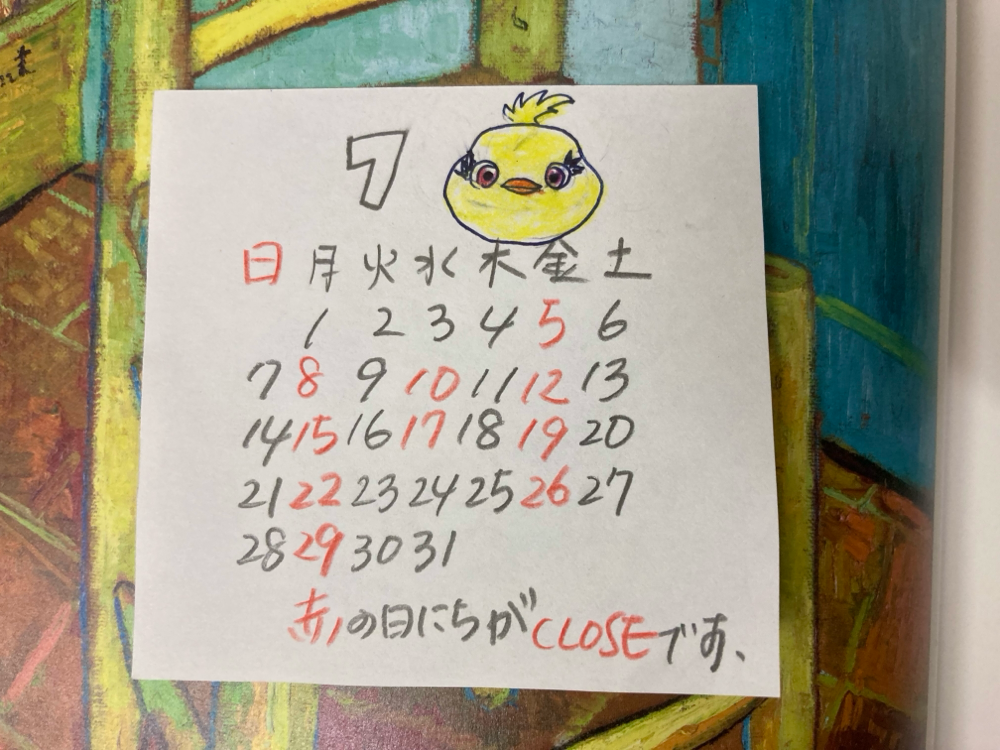 7
日 月 火 水 木 金 土
1 2 3 4 5 6
7 8 9 10 11 12 13
14 15 16 17 18 19 20
21 22 23 24 25 26 27
28 29 30 31
赤の日にちがCLOSEです、